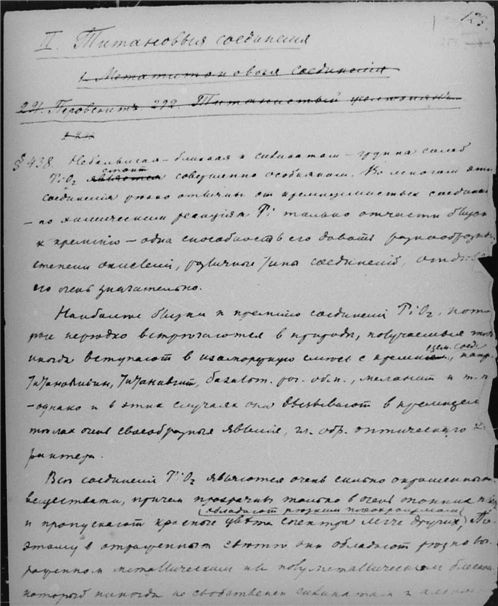 123
II. Титановыя соединения
1. Метатитановыя соединения
291. Перовскит 292. Титанистый
§ 438. Небольшая – близкая к силикатам – группа солей
TiO₂ является стоит совершенно особняком. Во многом эти
соединения резко отличны от кремнекислых соединений
– по химическим реакциям Ti только отчасти близок
к кремнию – одна способность его давать разнообразные
степени окисления, различные типы соединений,
его очень значительно.
Наиболее близки к кремнию соединения TiO₂,
нередко встречаются в природе, получаемые
иногда вступают в изоморфную смесь с кремнием, напр.
базальт. рог. обм., меланит и т. п.
– однако и в этих случаях она вызывают в кремнекислых
телах очень своеобразные явления, гл. обр. оптического ха-
рактера.
Все соединения TiO₂ являются очень сильно окрашенными
веществами, причем прозрачны только в очень тонких
обладают резким
и пропускают красные цвета спектра легче других. По-
этому в отраженном свете они обладают
металлическим или полуметаллическим блеском
который никогда не свойственен силикатам и